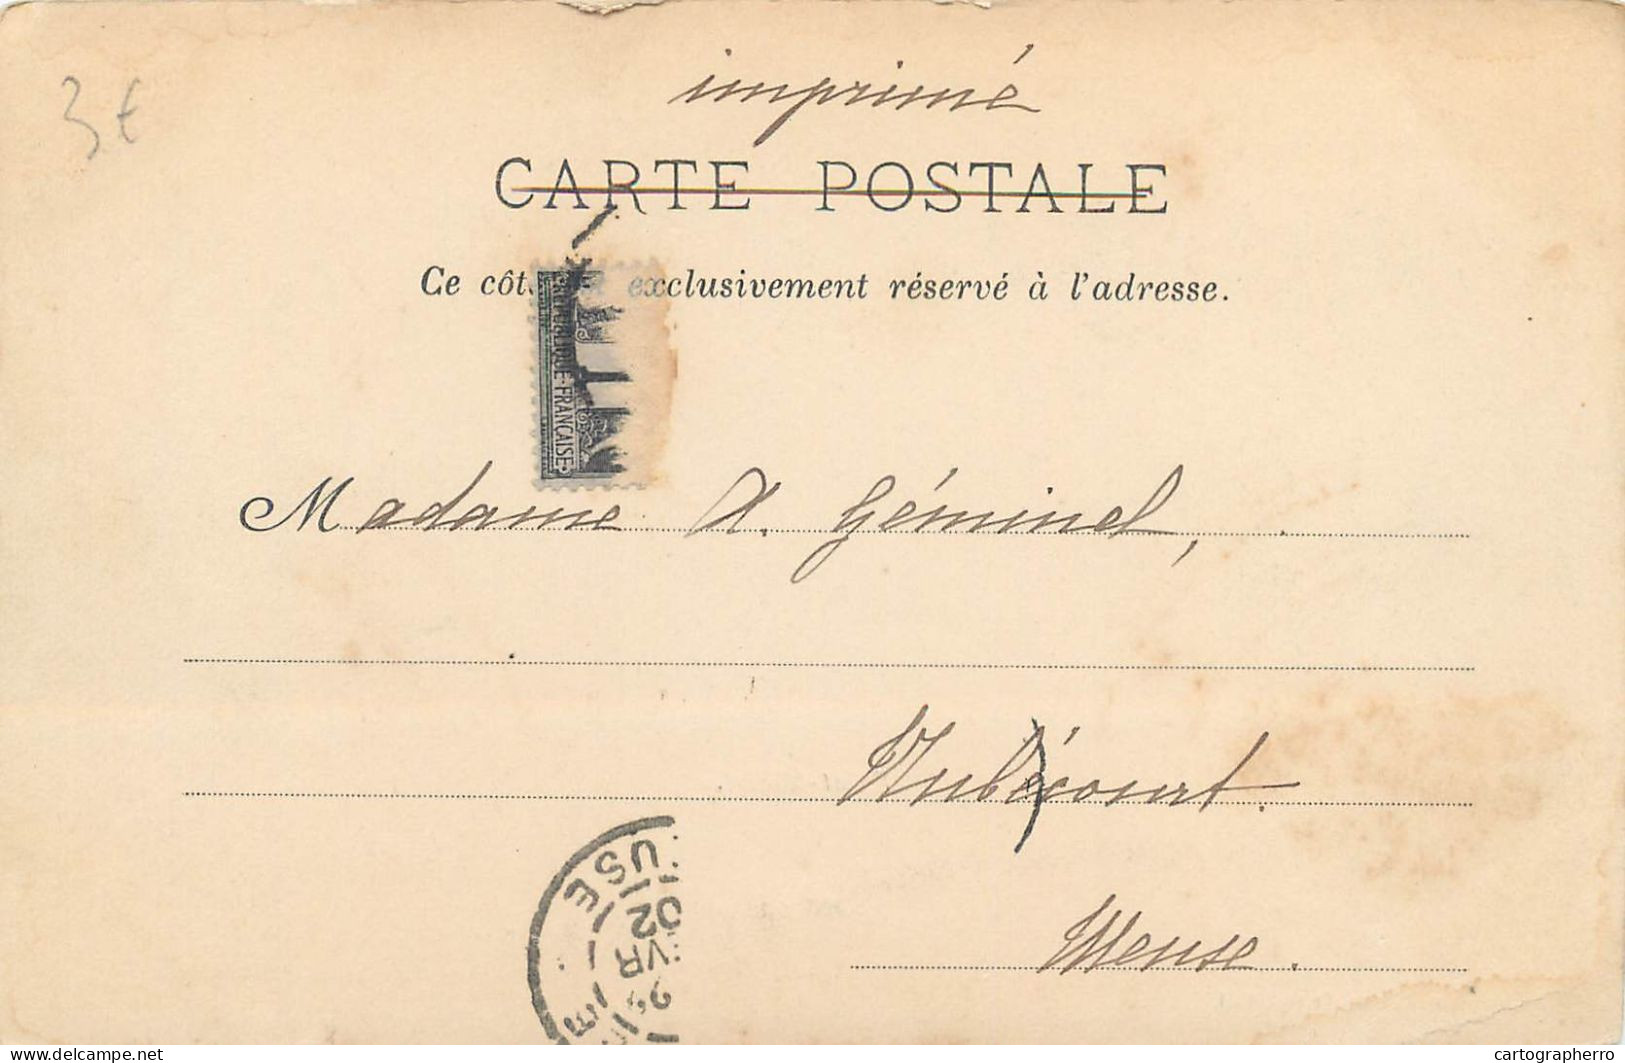 3 €
imprimé
CARTE POSTALE
Ce côt exclusivement réservé à l'adresse.
RÉPUBLIQUE FRANÇAISE
Madame A. Géminel,
Nubécourt.
Meuse.
USE
02
delcampe.net
cartographerro